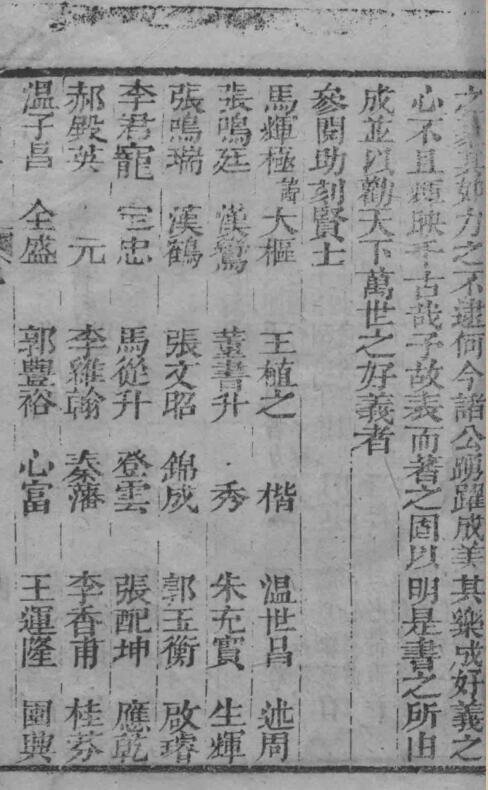 之 其如力之不逮何今諸公踴躍成美其樂成好義之
心不且輝映千古哉予故表而著之固以明是書之所由
成並以勸天下萬世之好義者
參閱助刻賢士
馬輝極 大樞 王植之 楷 温世昌 述周
張鳴廷 漢鷺 董書升 秀 朱充實 生輝
張鳴瑞 漢鶴 張文昭 錦成 郭玉衡 啟璿
李君寵 宝忠 馬從升 登雲 張配坤 應乾
郝殿英 元 李維翰 秦藩 李香甫 桂芬
温子昌 全盛 郭豐裕 心富 王運隆 國興